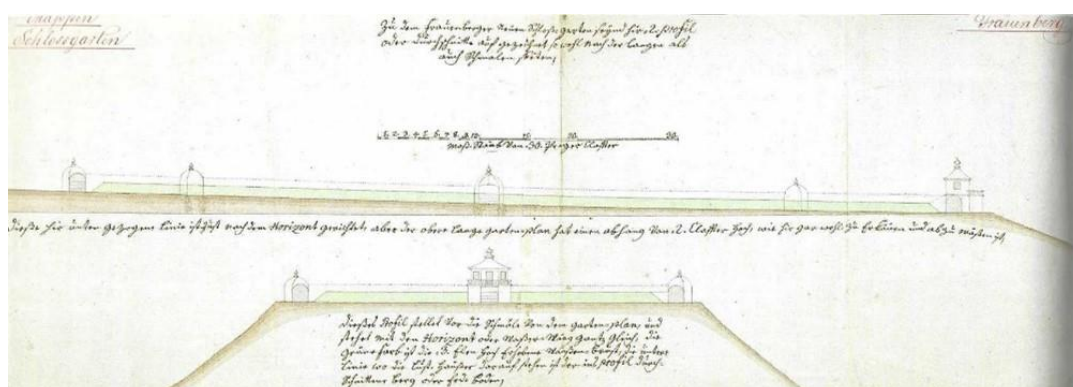 Mappen
Schlossgarten
Frauenberg
Zu dem Frauenberger Neuen Schlos garten seynd hir 2. profil
oder durchschnitte auf gezeichnet so wohl nach der langen als
auch Schmalen seiten,
1 2 3 4 5 6 7 8 9 10 20 30
Maß Staab Von 30. Prager Claffter
Dieße hir unter gezogene Linie ist just nach dem Horizont gerichtet, aber der obere lange garten plan hat einen abhang Von 2. Claffter hoch, wie hir gar wohl zu und ab zu ist,
Dießes Profil stellet Vor die Schmäle Von dem garten plan, und
stehet mit dem Horizont oder Waßer Wag gantz Gleich, die
grüne farb ist die Elen hoch die untere
Linie wo die Lust Häußer darauf stehen ist der im profil durch
Schnittene berg oder Erd boden,